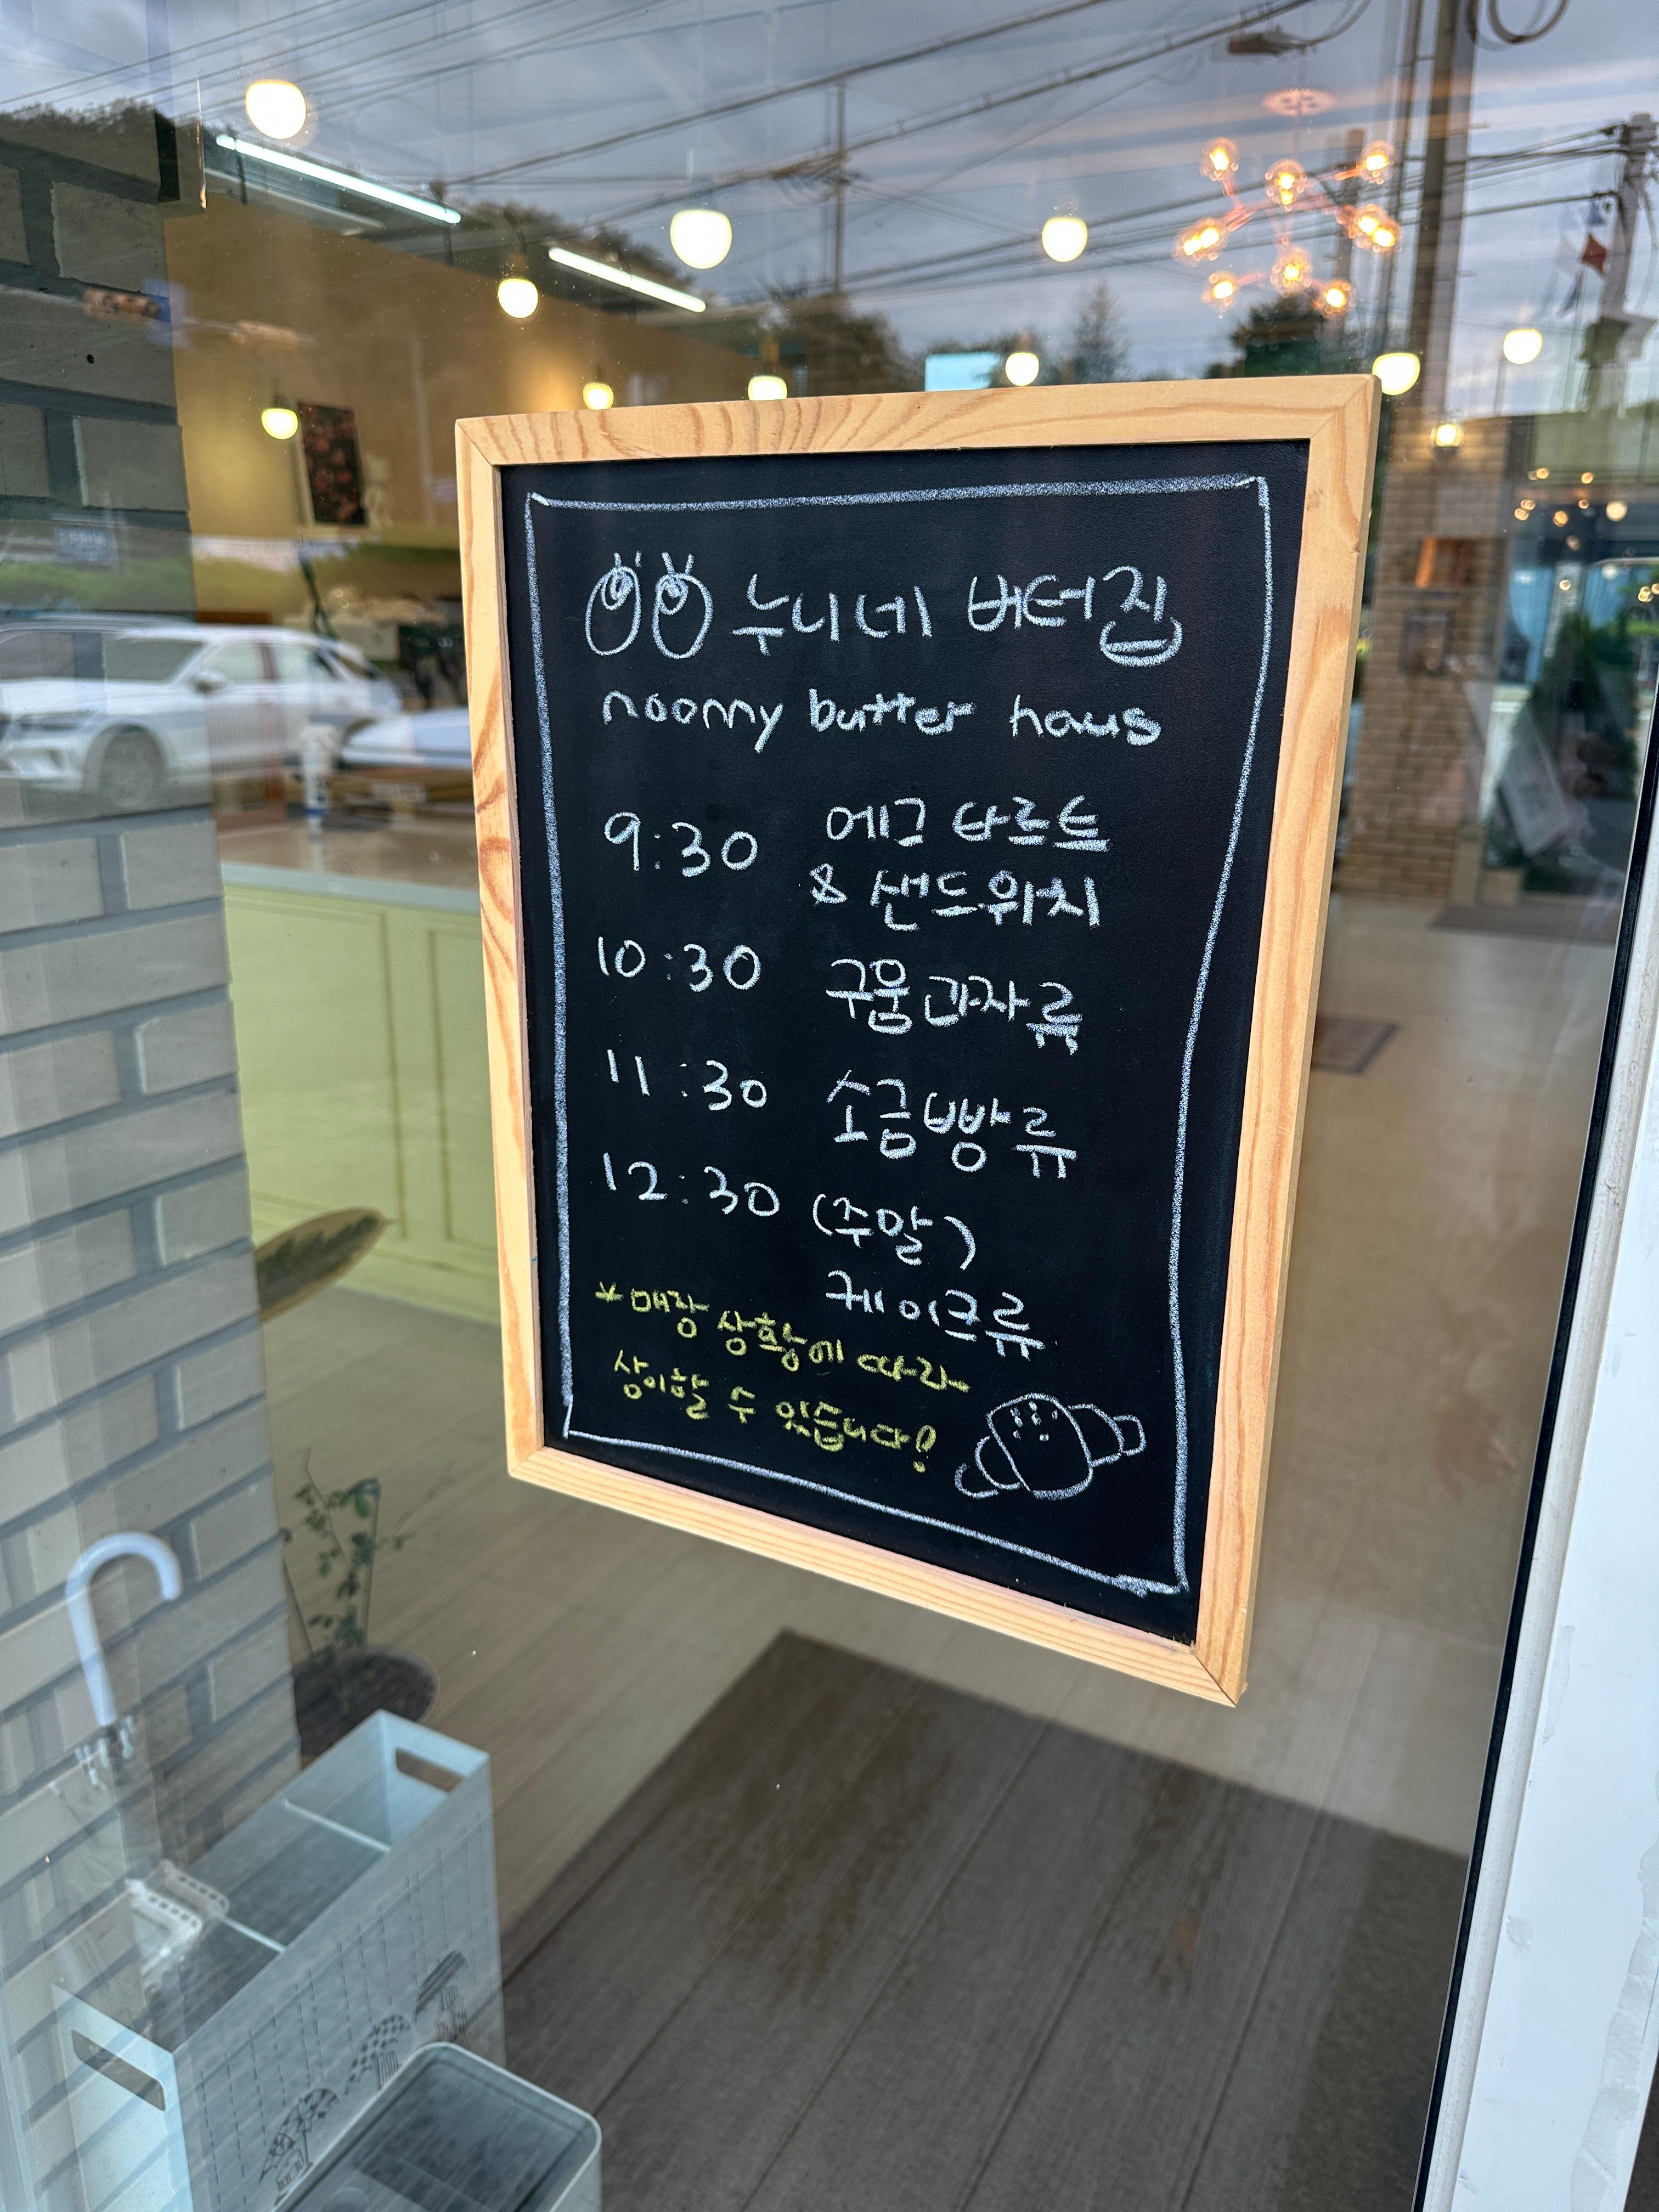 누니네 버터집
noonny butter haus
9:30 에그타르트
& 샌드위치
10:30 구움과자류
11:30 소금빵류
12:30 (주말)
케이크류
*매장 상황에 따라
상이할 수 있습니다!